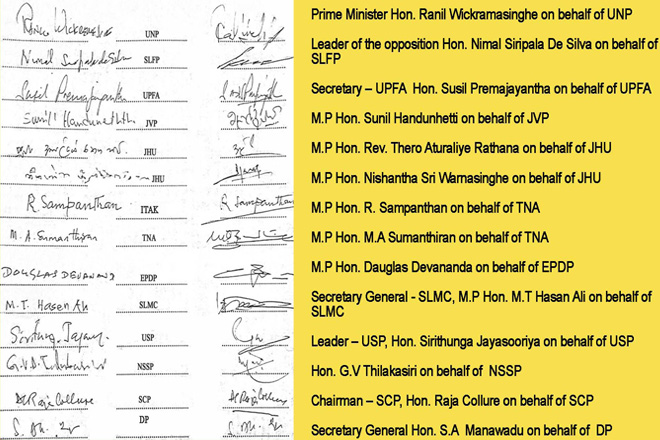 Ranil Wickremesinghe UNP
Nimal Siripala de Silva SLFP
Susil Premajayantha UPFA Susil Premjayantha
Sunil Handunhetti JVP
JHU
JHU
R. Sampanthan ITAK R. Sampanthan
M. A. Sumanthiran TNA
DOUGLAS DEVANANDA EPDP
M.T. Hasen Ali SLMC
Siritunga Jayasuriya USP
G.V.D. Tilakasiri NSSP
Raja Collure SCP Raja Collure
DP
Prime Minister Hon. Ranil Wickramasinghe on behalf of UNP
Leader of the opposition Hon. Nimal Siripala De Silva on behalf of
SLFP
Secretary – UPFA Hon. Susil Premajayantha on behalf of UPFA
M.P Hon. Sunil Handunhetti on behalf of JVP
M.P Hon. Rev. Thero Aturaliye Rathana on behalf of JHU
M.P Hon. Nishantha Sri Warnasinghe on behalf of JHU
M.P Hon. R. Sampanthan on behalf of TNA
M.P Hon. M.A Sumanthiran on behalf of TNA
M.P Hon. Dauglas Devananda on behalf of EPDP
Secretary General - SLMC, M.P Hon. M.T Hasan Ali on behalf of
SLMC
Leader – USP, Hon. Sirithunga Jayasooriya on behalf of USP
Hon. G.V Thilakasiri on behalf of NSSP
Chairman – SCP, Hon. Raja Collure on behalf of SCP
Secretary General Hon. S.A Manawadu on behalf of DP